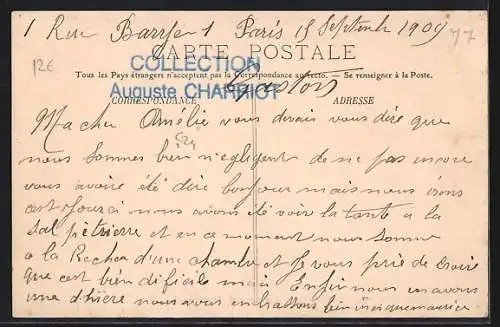 1 Rue Barye 1 Paris 15 Septembre 1909
12€
77
CARTE POSTALE
COLLECTION
Tous les Pays étrangers n'acceptent pas la Correspondance au recto. — Se renseigner à la Poste.
Auguste CHAPRIOT
Gaston
CORRESPONDANCE
ADRESSE
Ma cher Amélie vous devais vous dire que
nous sommes bien negligent de ne pas encore
vous avoire été dire bonjour mais nous irons
cest jourci nous avons été voir la tante a la
Sal pètrierre et en ce moment nous somme
a la Recher d'une chambre et Je vous prie de croire
que cest bien dificile mais Enfin nous en avons
une d'hière nous vous embrassons bien